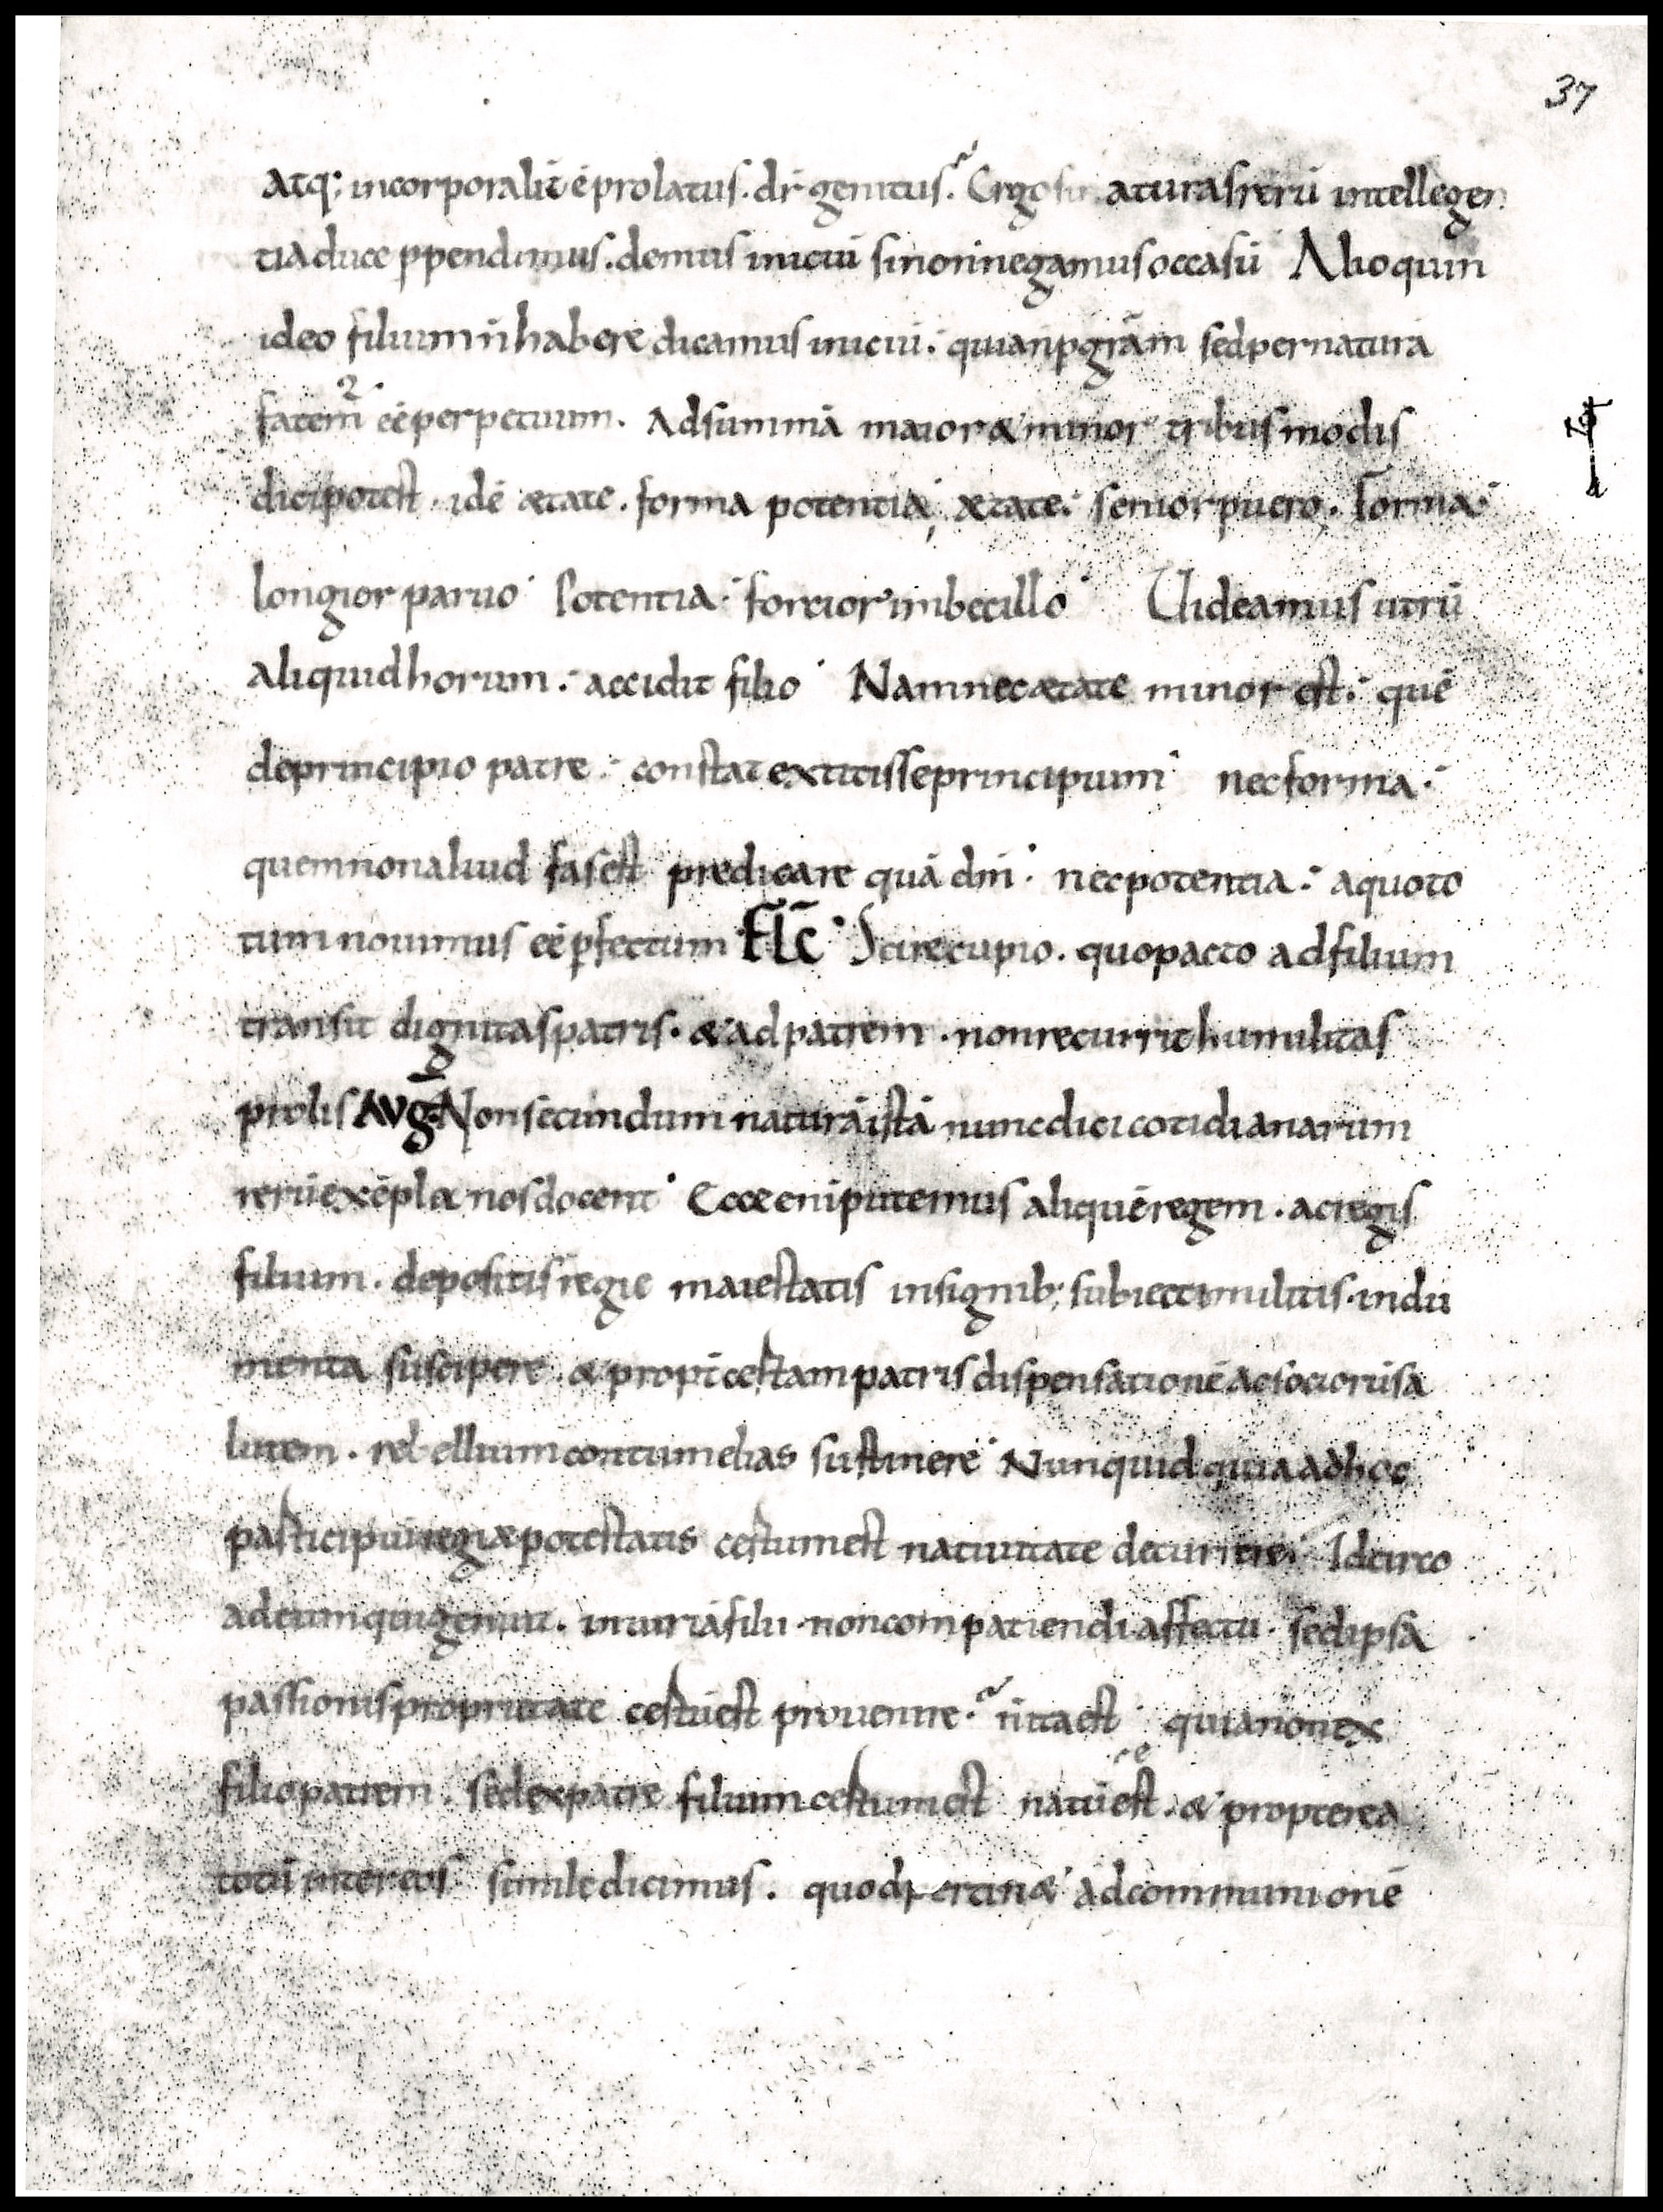 37
atq; incorporalit̄ ē prolatus. dr̄ genitus. Ergo si naturas rerū intellegen
tia duce ppendimus. demus iniciū si non negamus occasū Alioquin
ideo filium n̄ habere dicamus iniciū. quia n̄ p grām sed per naturā
fatem̄ eē perpetuum. Ad summā maior & minor tribus modis
dici potest. idē ætate. forma potentia; ætate. senior puero. Forma.
longior paruo Potentia. forcior imbecillo Uideamus utrū
aliquid horum. accidit filio Nam nec ætate minor est. quē
de principio patre. constat extitisse principium nec forma.
quem non aliud fas est predicare quā dm̄. nec potentia. a quo to
tum nouimus eē pfectum FL̄C Scire cupio. quo pacto ad filium
transit dignitas patris. & ad patrem. non recurrit humilitas
prolis AVḠ. Non secundum naturā istā nunc dici cotidianarum
rerū exēpla nos docent Ecce eni putemus aliquē regem. ac regis
filium. depositis regie maiestatis insignib; subiecti militis. indu
menta suscipere. & propt̄ certam patris dispensationē ac sociorū sa
lutem. rebellium contumelias sustinere Nunquid quia ad hoc
participiū regiæ potestatis certum est natiuitate decurrere. Idcirco
ad eum qui genuit. iniuriā filii. non compatiendi affectu. sed ipsā
passionis proprietate certū est prouenire. n̄ ita est quia non ex
filio patrem. sed ex patre filium certum est natū eēst. & propterea
totū inter eos simile dicimus. quod pertin& ad communionē